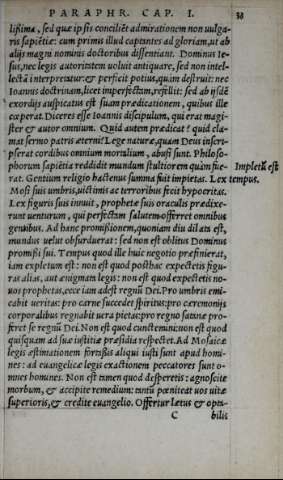 PARAPHR. CAP. I. 38
lissima, sed quæ ipsi conciliēt admirationem non uulga-
ris sapiētiæ: cum primis illud captantes ad gloriam, ut ab
alijs magni nominis doctoribus dissentiant. Dominus Ie-
sus, nec legis autoritatem uoluit antiquare, sed non intel-
lectā interpretatur: & perficit potius, quàm destruit: nec
Ioannis doctrinam, licet imperfectam, refellit: sed ab ijsdē
exordijs auspicatus est suam prædicationem, quibus ille
cœperat. Diceres esse Ioannis discipulum, qui erat magi-
ster & autor omnium. Quid autem prædicat? quid cla-
mat sermo patris æterni? Lege naturæ, quam Deus inscri-
pserat cordibus omnium mortalium, abusi sunt. Philoso-
phorum sapiētia reddidit mundum stultiorem quàm fue- Impletū est
rat. Gentium religio hactenus summa fuit impietas. Lex tempus.
Mosi suis umbris, uictimis ac terroribus fecit hypocritas.
Lex figuris suis innuit, prophetæ suis oraculis prædixe-
runt uenturum, qui perfectam salutem offerret omnibus
gentibus. Ad hanc promissionem, quoniam diu dilata est,
mundus uelut obsurduerat: sed non est oblitus Dominus
promissi sui. Tempus quod ille huic negotio præfinierat,
iam expletum est: non est quod posthac expectetis figu-
ras alias, aut ænigmam legis: non est quod expectetis no-
uos prophetas, ecce iam adest regnū Dei. Pro umbris emi-
cabit ueritas: pro carne succedet spiritus: pro cæremonijs
corporalibus regnabit uera pietas: pro regno satanæ pro-
feret se regnū Dei. Non est quod cunctemini: non est quod
quisquam ad suæ iustitiæ præsidia respectet. Ad Mosaicæ
legis æstimationem forsitan aliqui iusti sunt apud homi-
nes: ad euangelicæ legis exactionem peccatores sunt o-
mnes homines. Non est tamen quod desperetis: agnoscite
morbum, & accipite remedium: tantū pœniteat uos uitæ
superioris, & credite euangelio. Offertur lætus & opta-
C bilis